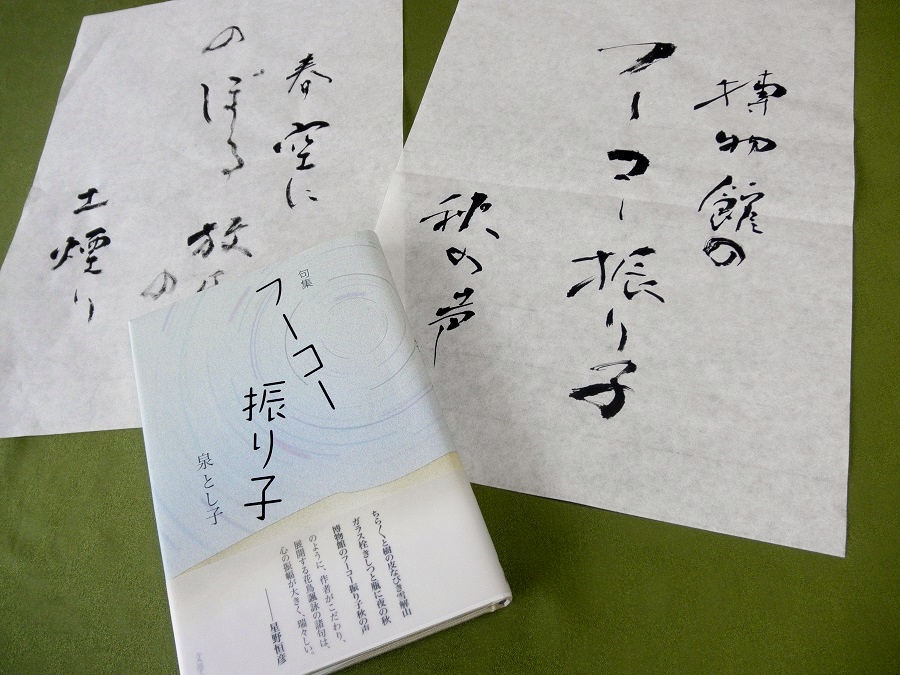 博物館の
フーコー振り子
秋の声
春空に
のぼる放
の
土煙り
句集
フーコー
振り子
泉とし子
ちら〱と樹の皮なびき雪解山
ガラス栓きしつと瓶に夜の秋
博物館のフーコー振り子秋の声
のように、作者がこだわり、
展開する花鳥諷詠の諸句は、
心の振幅が大きく、瑞々しい。
――星野恒彦